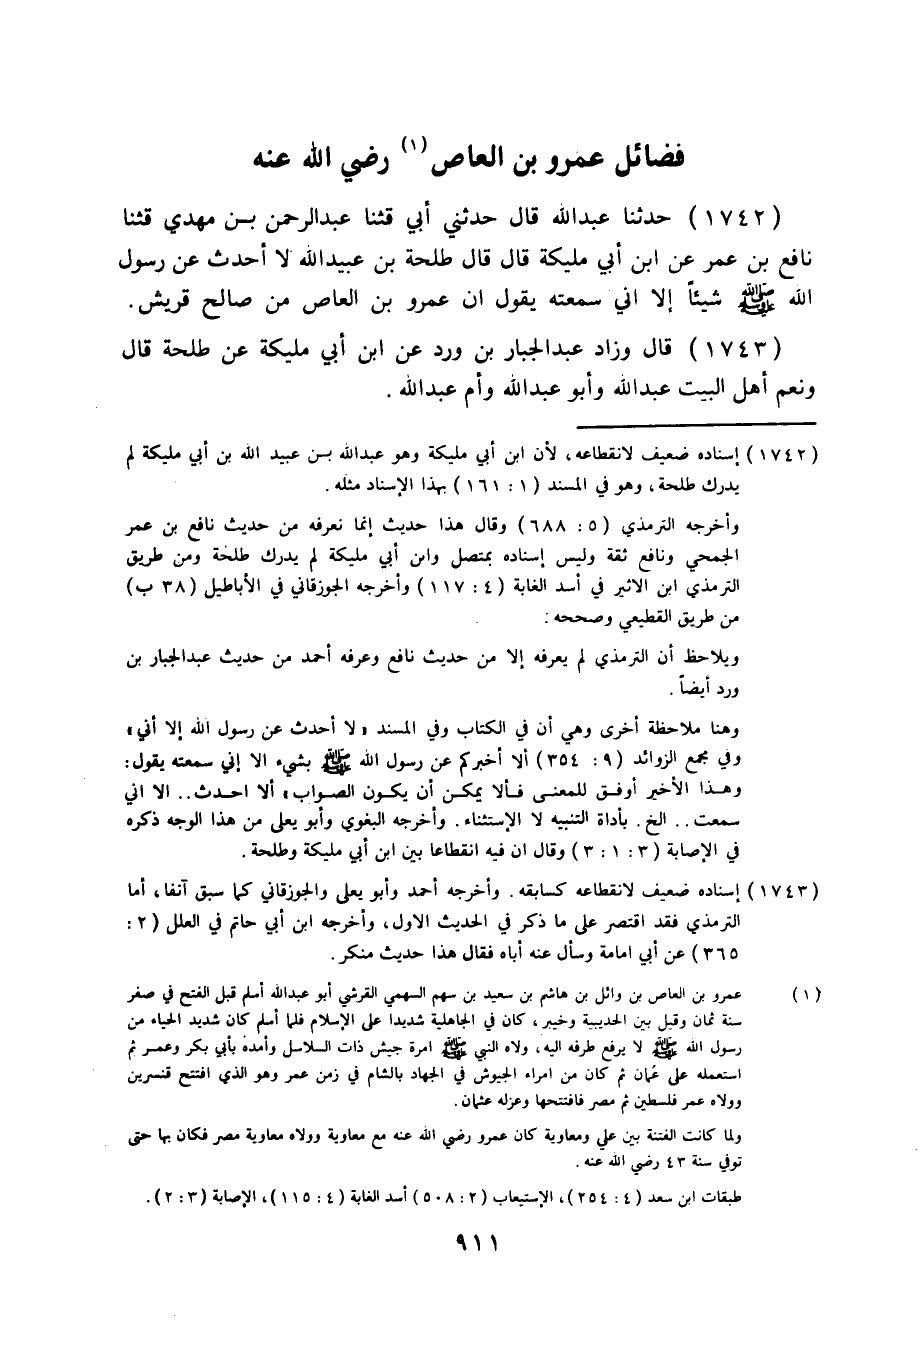 فضائل عمرو بن العاص (١) رضي الله عنه
(١٧٤٢) حدثنا عبدالله قال حدثني أبي قثنا عبدالرحمن بـن مهدي قثنا
نافع بن عمر عن ابن أبي مليكة قال قال طلحة بن عبيدالله لا أحدث عن رسول
الله ﷺ شيئاً إلا اني سمعته يقول ان عمرو بن العاص من صالح قريش.
(١٧٤٣) قال وزاد عبدالجبار بن ورد عن ابن أبي مليكة عن طلحة قال
ونعم أهل البيت عبدالله وأبو عبدالله وأم عبدالله.
(١٧٤٢) إسناده ضعيف لانقطاعه، لأن ابن أبي مليكة وهو عبدالله بـن عبيد الله بن أبي مليكة لم
يدرك طلحة، وهو في المسند (١ : ١٦١) بهذا الإسناد مثله.
وأخرجه الترمذي (٥: ٦٨٨) وقال هذا حديث إنما نعرفه من حديث نافع بن عمر
الجمحي ونافع ثقة وليس إسناده بمتصل وابن أبي مليكة لم يدرك طلحة ومن طريق
الترمذي ابن الاثير في أسد الغابة (٤ : ١١٧) وأخرجه الجوزقاني في الأباطيل (٣٨ ب)
من طريق القطيعي وصححه:
ويلاحظ أن الترمذي لم يعرفه إلا من حديث نافع وعرفه أحمد من حديث عبدالجبار بن
ورد أيضاً.
وهنا ملاحظة أخرى وهي أن في الكتاب وفي المسند «لا أحدث عن رسول الله إلا أني»
وفي مجمع الزوائد (٩: ٣٥٤) ألا أخبركم عن رسول الله ﷺ بشيء الا إني سمعته يقول:
وهـذا الأخير أوفـق للمعنـى فـألا يمكـن أن يكـون الصـواب» ألا احـدث.. الا اني
سمعت.. الخ. بأداة التنبيه لا الإستثناء. وأخرجه البغوي وأبو يعلى من هذا الوجه ذكره
في الإصابة (٣ : ١ : ٣) وقال ان فيه انقطاعا بين ابن أبي مليكة وطلحة.
(١٧٤٣) إسناده ضعيف لانقطاعه كسابقه. وأخرجه أحمد وأبو يعلى والجوزقاني كما سبق آنفا، أما
الترمذي فقد اقتصر على ما ذكر في الحديث الاول، وأخرجه ابن أبي حاتم في العلل (٢ :
٣٦٥) عن أبي امامة وسأل عنه أباه فقال هذا حديث منكر.
(١) عمرو بن العاص بن وائل بن هاشم بن سعيد بن سهم السهمي القرشي أبو عبدالله أسلم قبل الفتح في صفر
سنة ثمان وقيل بين الحديبية وخيبر، كان في الجاهلية شديدا على الإسلام فلما أسلم كان شديد الحياء من
رسول الله ﷺ لا يرفع طرفه اليه، ولاه النبي ﷺ امرة جيش ذات السلاسل وأمده بأبي بكر وعمـر ثم
استعمله على عُمان ثم كان من امراء الجيوش في الجهاد بالشام في زمن عمر وهو الذي افتتح قنسرين
وولاه عمر فلسطين ثم مصر فافتتحها وعزله عثمان.
ولما كانت الفتنة بين علي ومعاوية كان عمرو رضي الله عنه مع معاوية وولاه معاوية مصر فكان بها حتى
توفي سنة ٤٣ رضي الله عنه.
طبقات ابن سعد (٤ : ٢٥٤)، الإستيعاب (٢ : ٥٠٨) أسد الغابة (٤ : ١١٥)، الإصابة (٣ : ٢).
٩١١